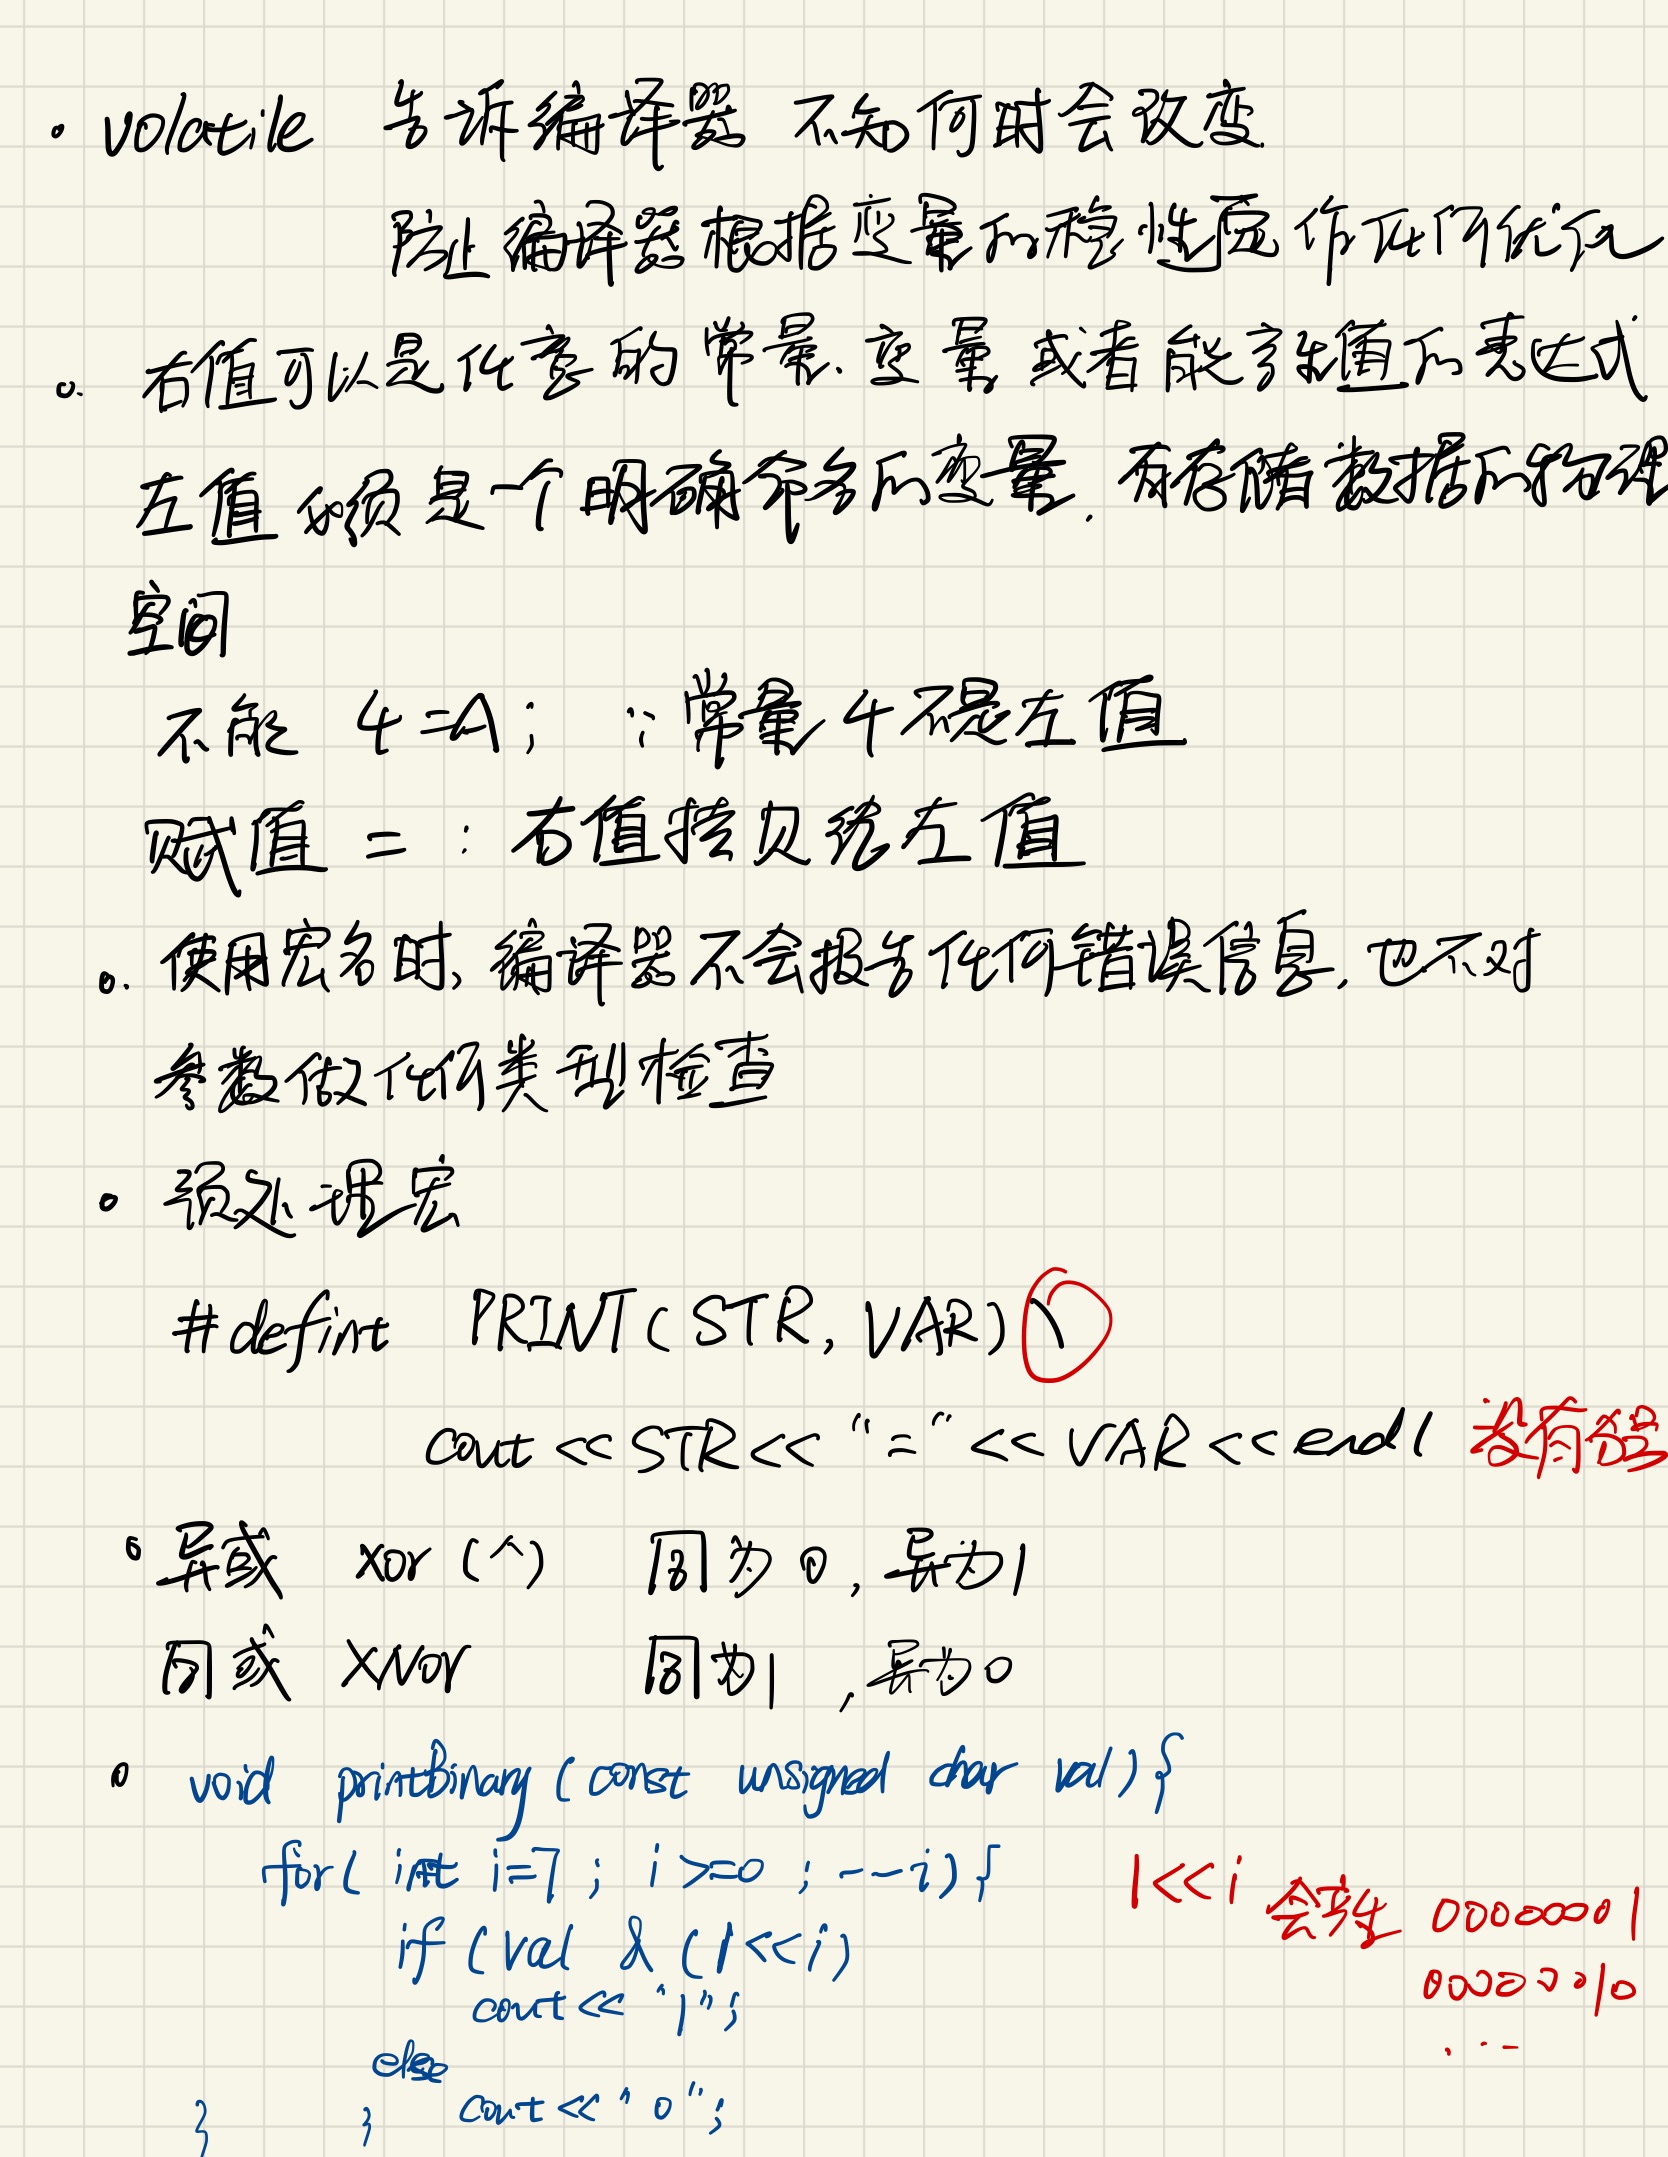 · volatile 告诉编译器 不知何时会改变
防止编译器根据变量的稳性定作任何优化
o. 右值可以是任意的常量、变量 或者能产生值的表达式
左值必须是一个明确命名的变量, 有存储数据的物理
空间
不能 4=A; ∵常量4不是左值
赋值 = : 右值拷贝给左值
o. 使用宏名时, 编译器不会报告任何错误信息, 也不对
参数做任何类型检查
o 预处理宏
#defint PRINT(STR, VAR) \
cout << STR << "=" << VAR << endl 没有分号
o 异或 xor (^) 同为0, 异为1
同或 XNor 同为1, 异为0
o void printBinary (const unsigned char val) {
for( int i=7; i>=0; --i) { 1<<i 会产生 00000001
if (val & (1<<i) 00000010
cout << "1"; ...
else
} } cout << "0";